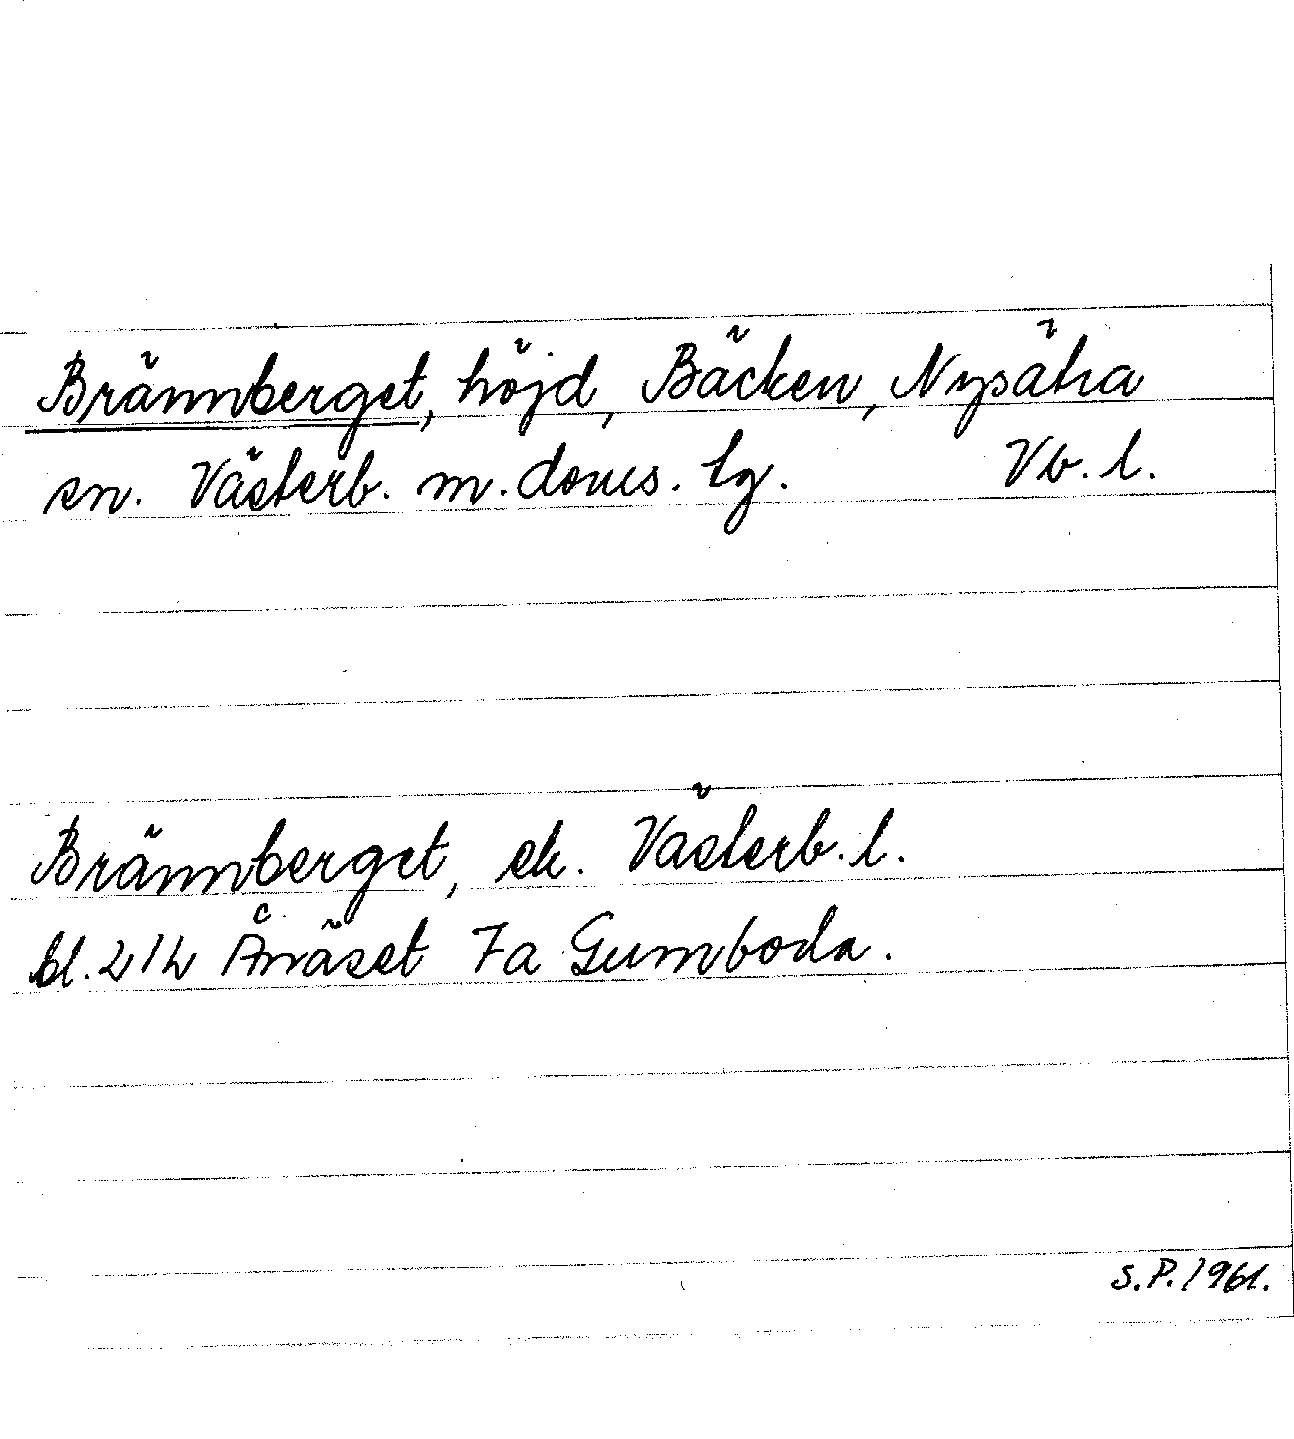 Brännberget, höjd, Bäcken, Nysätra
sn. Västerb. m. doms. lg. Vb. l.
Brännberget, ek. Västerb. l.
bl. 21L Ånäset 7a Gumboda.
S.P. 1961.